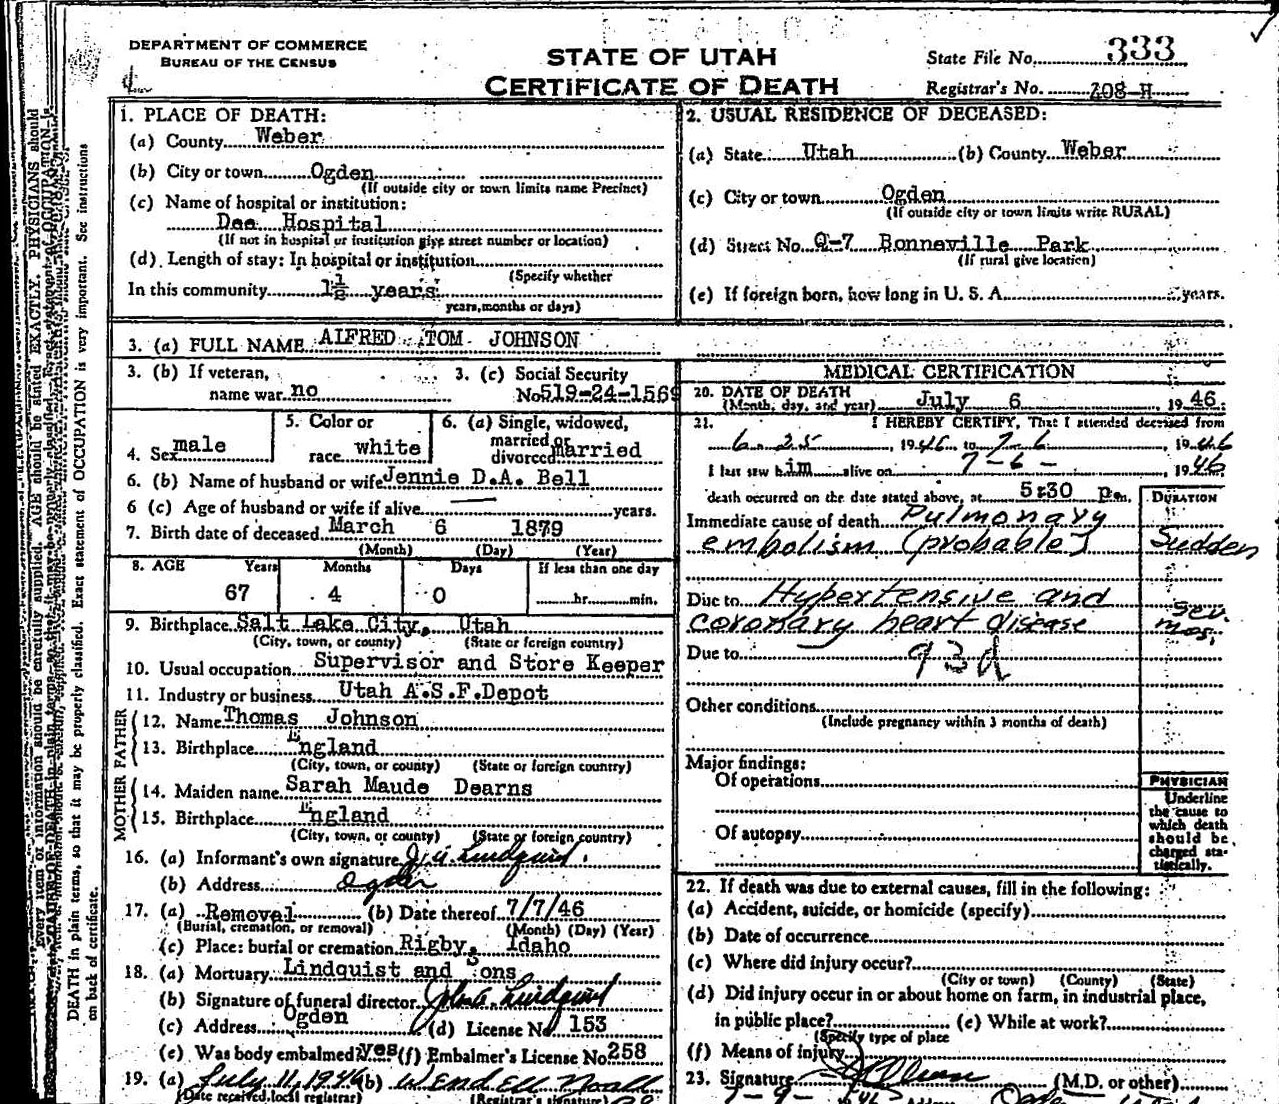 DEPARTMENT OF COMMERCE
BUREAU OF THE CENSUS
STATE OF UTAH
CERTIFICATE OF DEATH
State File No. 333
Registrar's No. 208-H
1. PLACE OF DEATH:
(a) County Weber
(b) City or town Ogden
(If outside city or town limits name Precinct)
(c) Name of hospital or institution:
Dee Hospital
(If not in hospital or institution give street number or location)
(d) Length of stay: In hospital or institution
(Specify whether
In this community 1½ years
years, months or days)
2. USUAL RESIDENCE OF DECEASED:
(a) State Utah (b) County Weber
(c) City or town Ogden
(If outside city or town limits write RURAL)
(d) Street No. Q-7 Bonneville Park
(If rural give location)
(e) If foreign born, how long in U. S. A. years.
3. (a) FULL NAME ALFRED TOM JOHNSON
3. (b) If veteran, name war no
3. (c) Social Security No 519-24-1569
4. Sex male
5. Color or race white
6. (a) Single, widowed, married or divorced married
6. (b) Name of husband or wife Jennie D.A. Bell
6 (c) Age of husband or wife if alive years.
7. Birth date of deceased March 6 1879
(Month) (Day) (Year)
8. AGE Years Months Days If less than one day
67 4 0 hr. min.
9. Birthplace Salt Lake City, Utah
(City, town, or county) (State or foreign country)
10. Usual occupation Supervisor and Store Keeper
11. Industry or business Utah A.S.F.Depot
FATHER
12. Name Thomas Johnson
13. Birthplace England
(City, town, or county) (State or foreign country)
MOTHER
14. Maiden name Sarah Maude Dearns
15. Birthplace England
(City, town, or county) (State or foreign country)
16. (a) Informant's own signature Lindquist
(b) Address Ogden
17. (a) Removal (b) Date thereof 7/7/46
(Burial, cremation, or removal) (Month) (Day) (Year)
(c) Place: burial or cremation Rigby, Idaho
18. (a) Mortuary Lindquist and Sons
(b) Signature of funeral director Lindquist
(c) Address Ogden (d) License No 153
(e) Was body embalmed? yes (f) Embalmer's License No 258
19. (a) July 11, 1946 (b) Wendell Noall
(Date received local registrar) (Registrar's signature)
MEDICAL CERTIFICATION
20. DATE OF DEATH
(Month, day, and year) July 6 1946
21. I HEREBY CERTIFY, That I attended deceased from
6-25, 1946, to 7-6, 1946
I last saw him alive on 7-6-, 1946
death occurred on the date stated above, at 5:30 p.m.
DURATION
Immediate cause of death Pulmonary
embolism (probable) Sudden
Due to Hypertensive and
coronary heart disease sev. mos.
Due to 93d
Other conditions
(Include pregnancy within 3 months of death)
Major findings:
Of operations
Of autopsy
PHYSICIAN
Underline
the cause to
which death
should be
charged sta-
tistically.
22. If death was due to external causes, fill in the following:
(a) Accident, suicide, or homicide (specify)
(b) Date of occurrence
(c) Where did injury occur?
(City or town) (County) (State)
(d) Did injury occur in or about home on farm, in industrial place,
in public place? (e) While at work?
(Specify type of place
(f) Means of injury
23. Signature (M.D. or other)
Every item of information should be carefully supplied. AGE should be stated EXACTLY. PHYSICIANS should
DEATH in plain terms, so that it may be properly classified. Exact statement of OCCUPATION is very important. See instructions
on back of certificate.